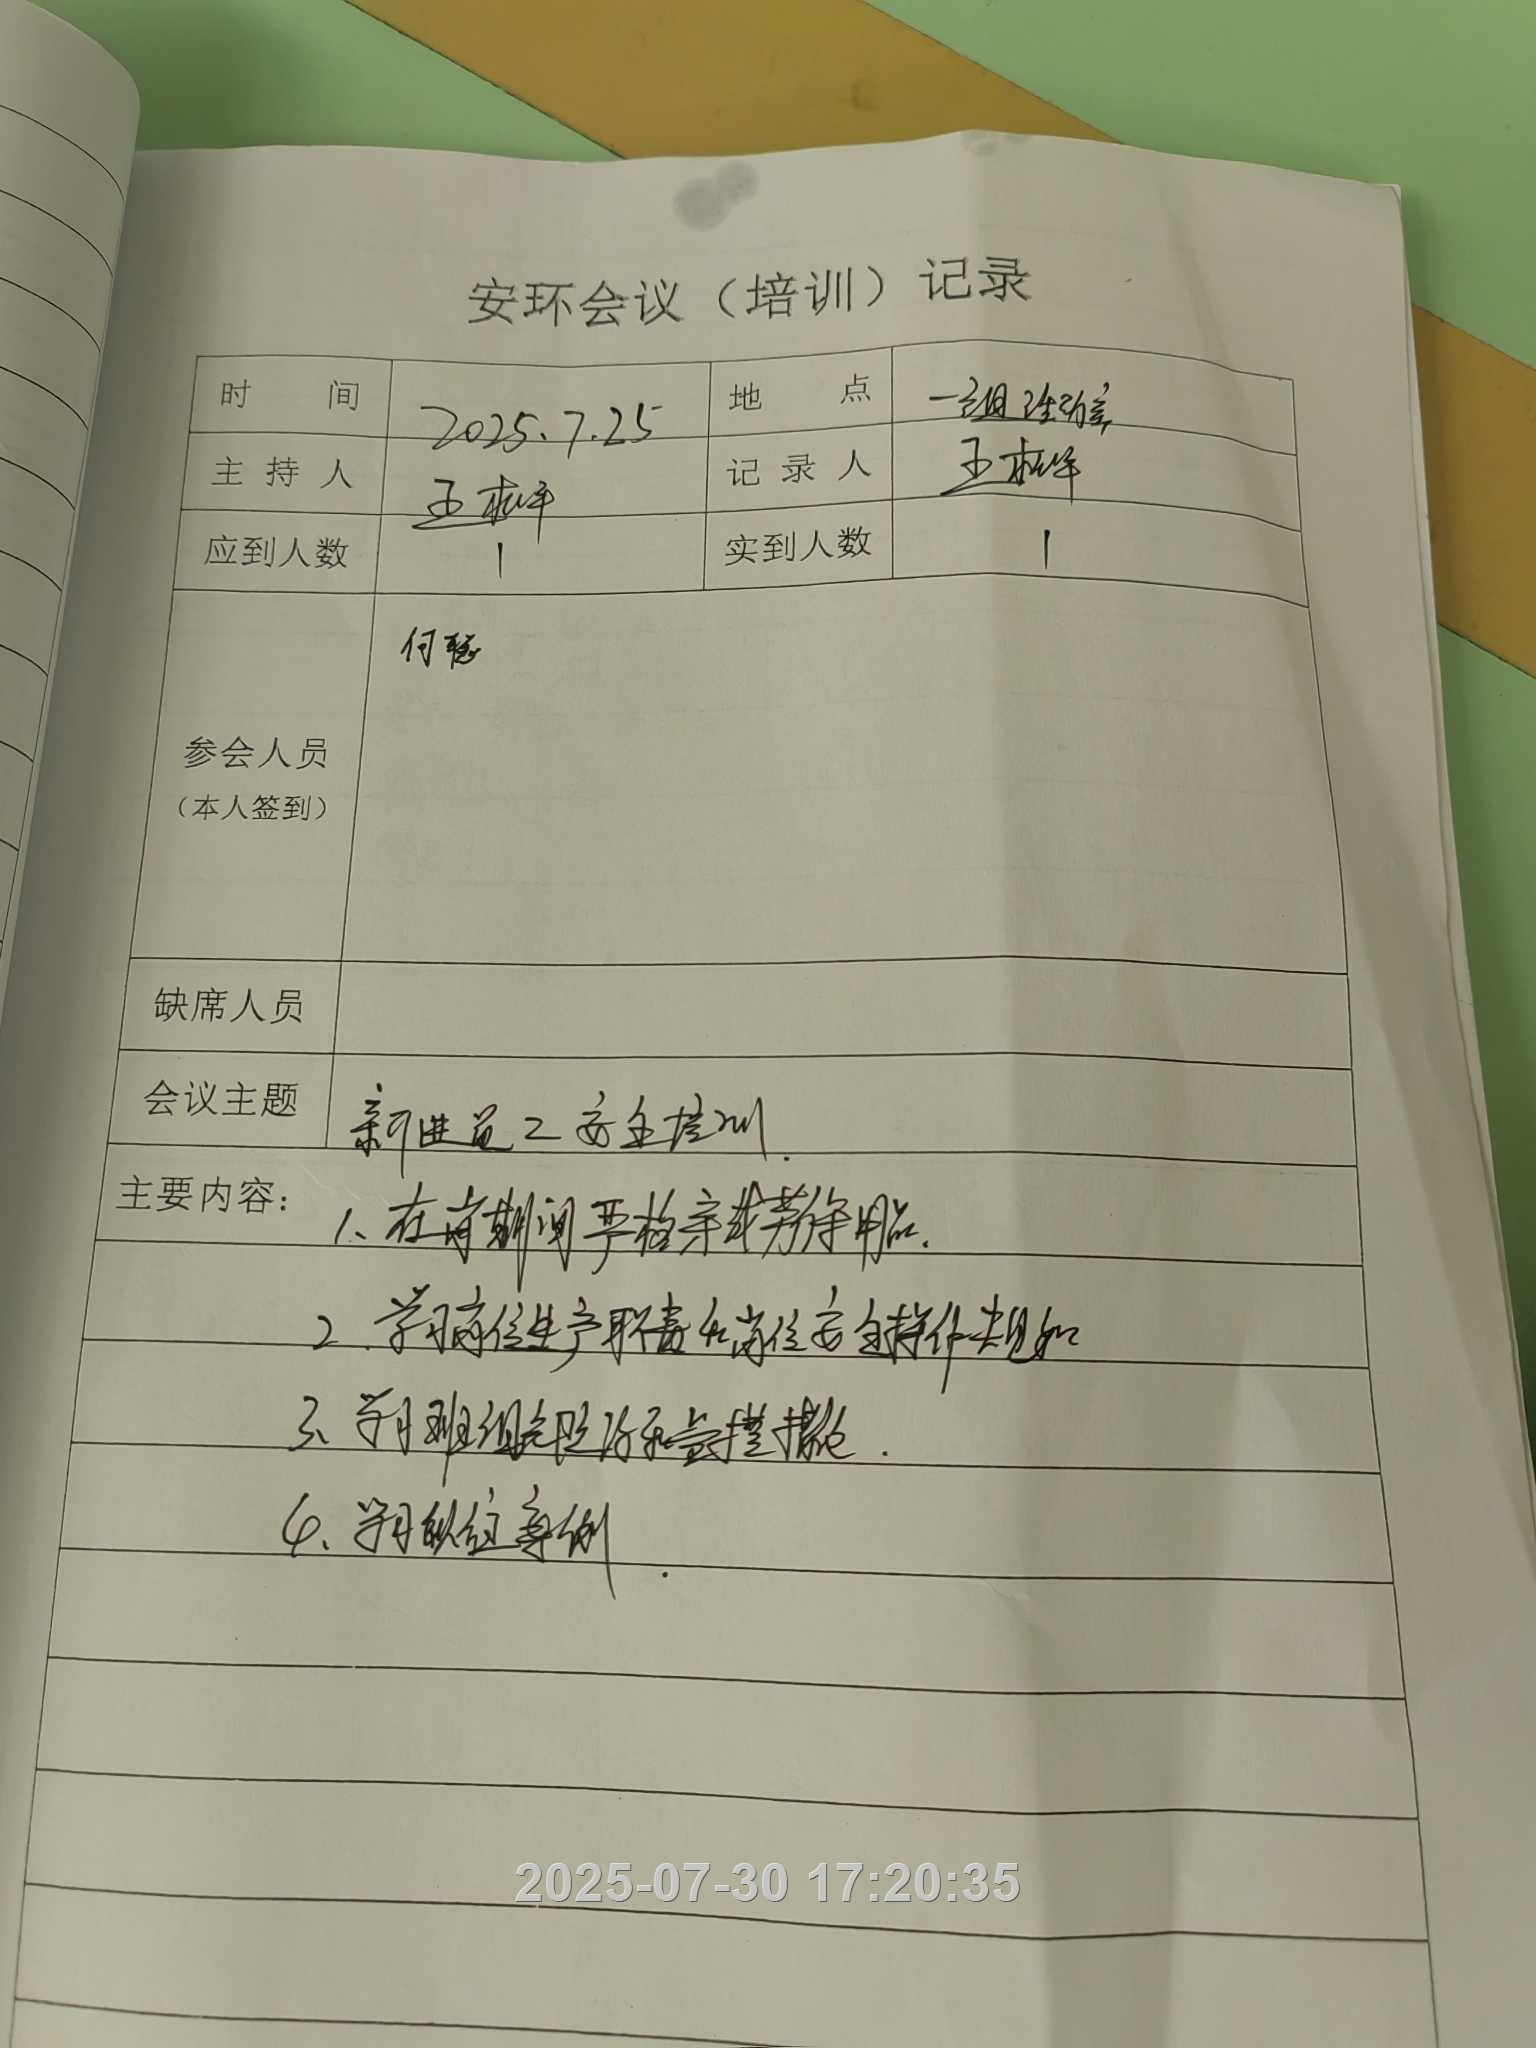 安环会议（培训）记录
时 间 2025.7.25 地 点 一组活动室
主 持 人 王松年 记 录 人 王松年
应到人数 1 实到人数 1
何聪
参会人员
（本人签到）
缺席人员
会议主题 新进员工安全培训.
主要内容： 1、在岗期间严格穿戴劳保用品.
2、学习岗位生产职责和岗位安全操作规程
3、学习班组危险源和管控措施.
4、学习 案例.
2025-07-30 17:20:35